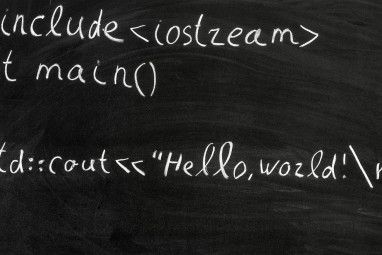 include <iostream>
t main()
td::cout<<"Hello, world!\n